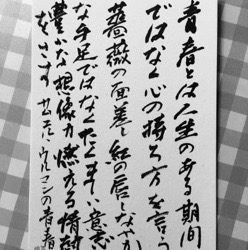 青春とは人生のある期間
ではなく心の持ち方を言う
薔薇の面差し紅の唇しなやか
な手足ではなくたくましい意志
豊かな想像力燃える情熱
をいう サムエル・ウルマンの青春